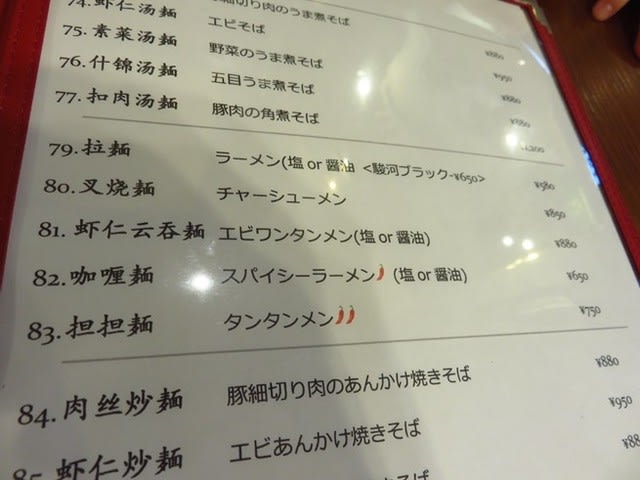 74. 虾仁汤麺 細切り肉のうま煮そば
75. 素菜汤麺 エビそば ¥880
76. 什錦汤麺 野菜のうま煮そば ¥950
77. 扣肉汤麺 五目うま煮そば ¥880
豚肉の角煮そば ¥880
79. 拉麺 ラーメン(塩 or 醤油 <駿河ブラック-¥650> ¥580
80. 叉烧麺 チャーシューメン ¥850
81. 虾仁云吞麺 エビワンタンメン(塩 or 醤油) ¥880
82. 咖喱麺 スパイシーラーメン (塩 or 醤油) ¥650
83. 担担麺 タンタンメン ¥750
84. 肉丝炒麺 豚細切り肉のあんかけ焼きそば ¥880
85. 虾仁炒麺 エビあんかけ焼きそば ¥950